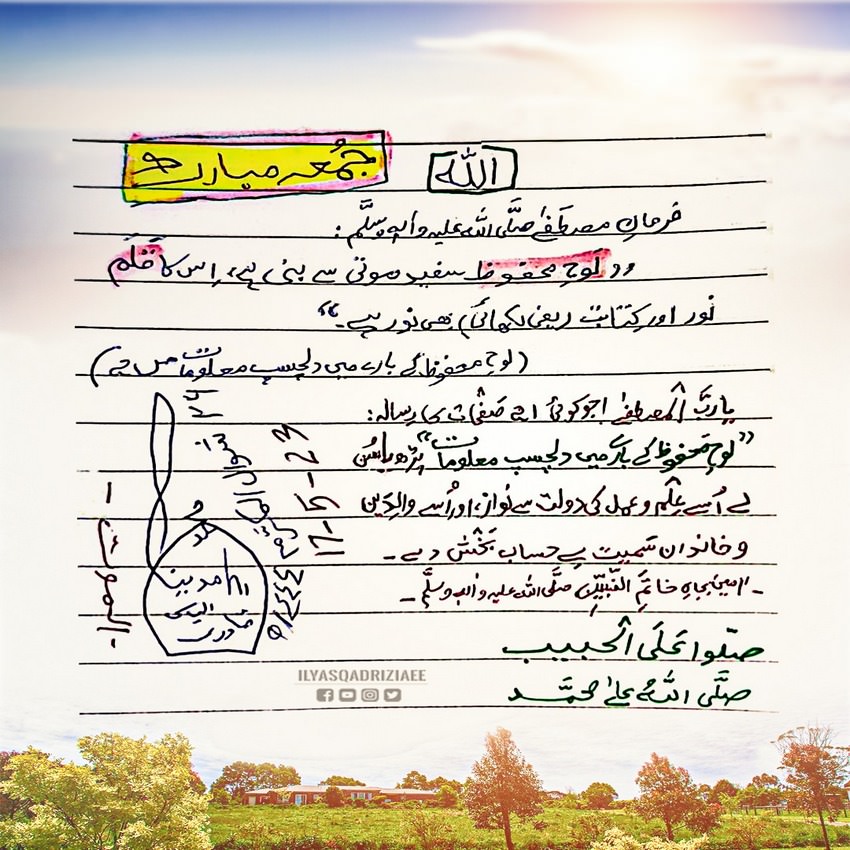 اللہ
جمعہ مبارک
فرمانِ مصطفےٰ صلَّی اللہ علیہ واٰلہٖ وسلَّم:
”لَوحِ محفوظ سفید موتی سے بنی ہے، اِس کا قلم
نُور اور کِتابت (یعنی لکھائی) بھی نور ہے۔“
(لوحِ محفوظ کے بارے میں دلچسپ معلومات ص)
یا ربَّ المصطفےٰ! جو کوئی صَفْحات کا رسالہ:
”لوحِ محفوظ کے بارے میں دلچسپ معلومات“ پڑھ یا سُن
لے اُسے عِلْم و عمل کی دولت سے نواز، اور اُسے والِدَین
و خاندان سَمیت بے حساب بَخْش دے۔
اٰمین بجاہِ خاتَمِ النَّبِیّٖن صلَّی اللہ علیہ واٰلہٖ وسلَّم۔
صلّوا عَلَی الْحبیب
صلَّی اللہُ علیٰ محمَّد
23-5-17
مدینہ
الیاس
قادری
-الموت-
ILYASQADRIZIAEE